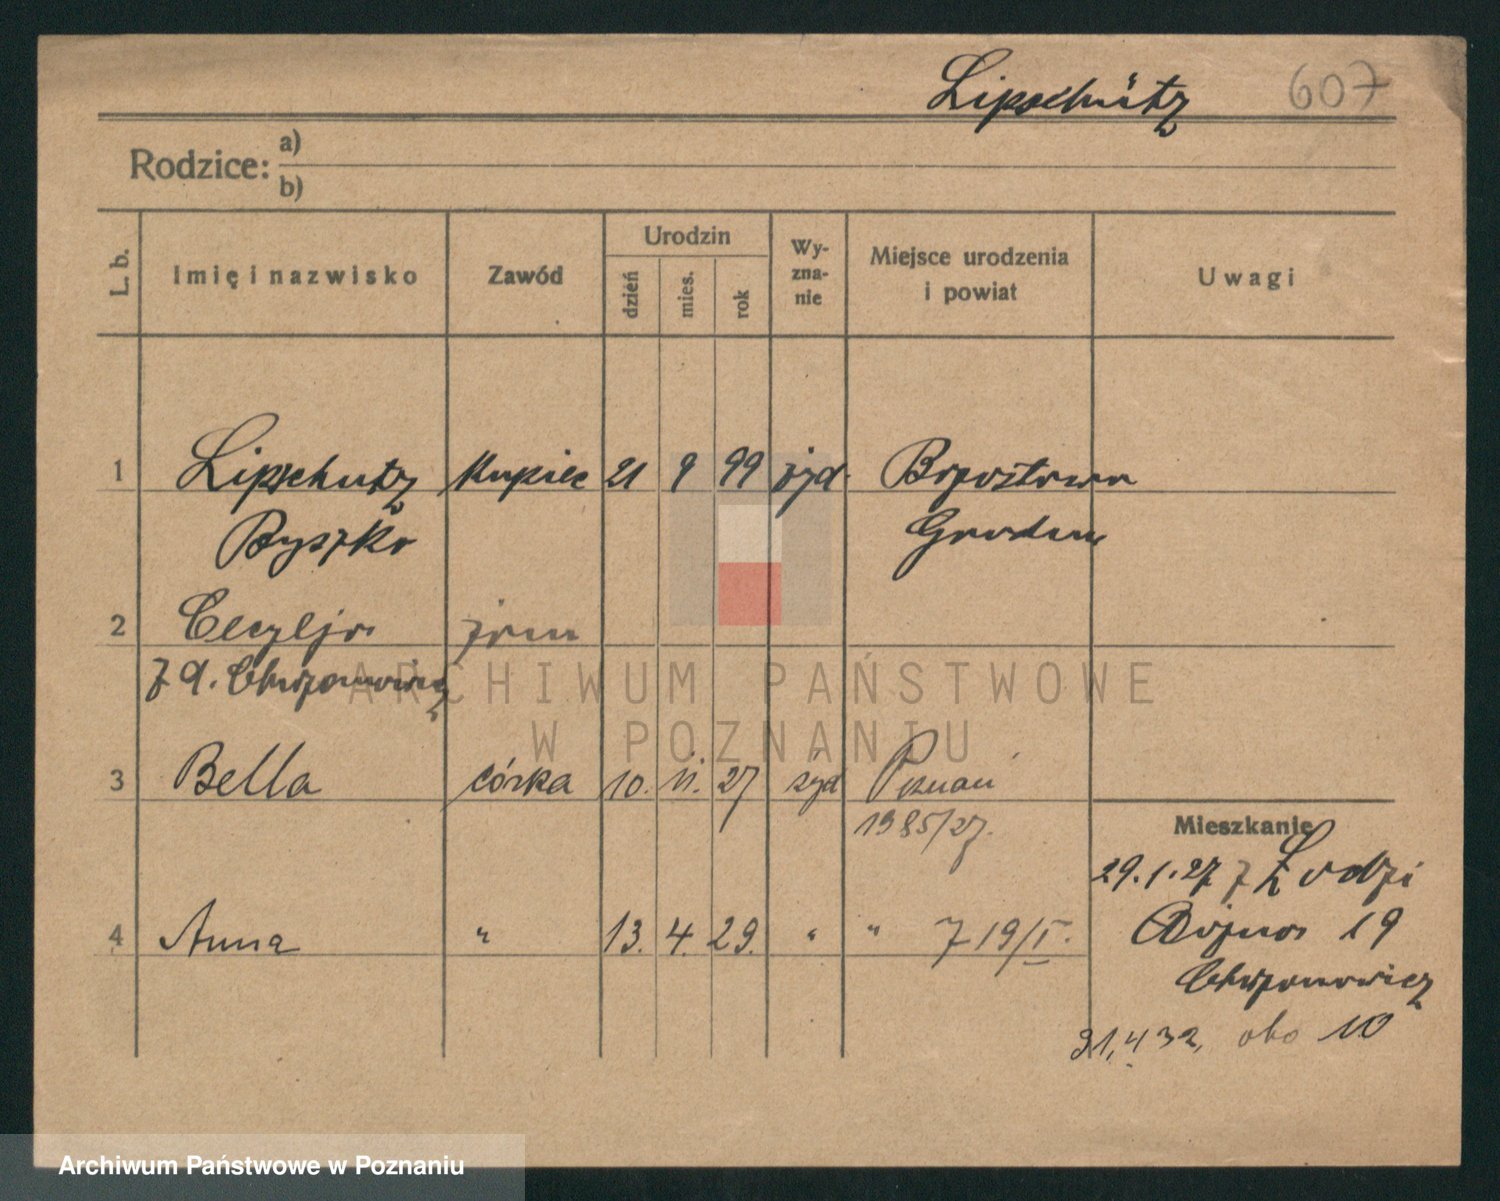 Lipschütz 607
Rodzice: a)
b)
L. b.
Imię i nazwisko
Zawód
Urodzin
dzień
mies.
rok
Wy-
zna-
nie
Miejsce urodzenia
i powiat
Uwagi
1 Lipschutz kupiec 21 9 99 żyd.
Ryszko
2 Cecylja żona
z d.
3 Bella córka 10. 11. 27 żyd Poznań
1985/27.
4 Anna " 13. 4. 29. " " 719/I.
Mieszkanie
29.1.27 z Łodzi
19
31,4 32, 10
ARCHIWUM PAŃSTWOWE
W POZNANIU
Archiwum Państwowe w Poznaniu